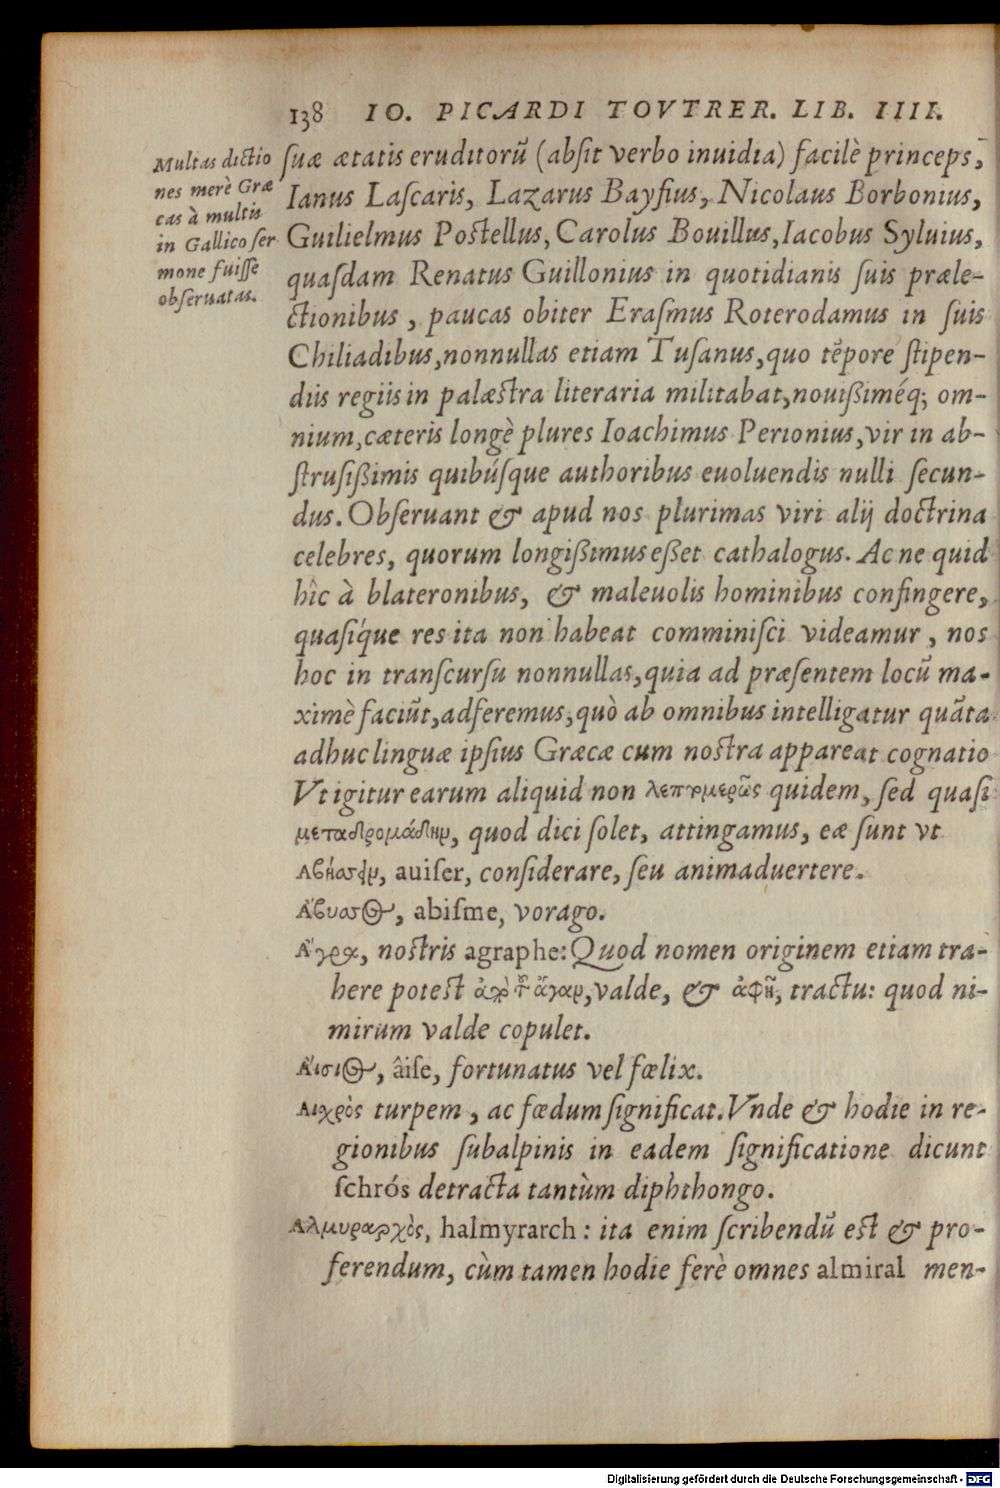 138 IO. PICARDI TOVTRER. LIB. IIII.
Multas dictio
nes merè Græ
cas à multis
in Gallico ser
mone fuisse
obseruatas.
ſuæ ætatis eruditorũ (abſit verbo inuidia) facilè princeps,
Ianus Laſcaris, Lazarus Bayfius, Nicolaus Borbonius,
Guilielmus Poſtellus, Carolus Bouillus, Iacobus Syluius,
quaſdam Renatus Guillonius in quotidianis ſuis præle-
ctionibus, paucas obiter Eraſmus Roterodamus in ſuis
Chiliadibus, nonnullas etiam Tuſanus, quo tẽpore ſtipen-
diis regiis in palæſtra literaria militabat, nouißiméq; om-
nium, cæteris longè plures Ioachimus Perionius, vir in ab-
ſtruſißimis quibúſque authoribus euoluendis nulli ſecun-
dus. Obſeruant & apud nos plurimas viri alij doctrina
celebres, quorum longißimus eßet cathalogus. Ac ne quid
hîc à blateronibus, & maleuolis hominibus confingere,
quaſíque res ita non habeat comminiſci videamur, nos
hoc in tranſcurſu nonnullas, quia ad præſentem locũ ma-
ximè faciũt, adferemus, quò ab omnibus intelligatur quãta
adhuc linguæ ipſius Græcæ cum noſtra appareat cognatio
Vt igitur earum aliquid non λεπτομερῶς quidem, ſed quaſi
μεταδρομάδην, quod dici ſolet, attingamus, eæ ſunt vt
Αβήσειν, auiſer, conſiderare, ſeu animaduertere.
Ἄβυσσος, abiſme, vorago.
Ἄγρα, noſtris agraphe: Quod nomen originem etiam tra-
here poteſt ἀπὸ τοῦ ἄγαν, valde, & ἀφῆ, tractu: quod ni-
mirum valde copulet.
Ἄισιος, âiſe, fortunatus vel fœlix.
Αιχρὸς turpem, ac fœdum ſignificat. Vnde & hodie in re-
gionibus ſubalpinis in eadem ſignificatione dicunt
ſchrós detracta tantùm diphthongo.
Αλμυραρχὸς, halmyrarch: ita enim ſcribendũ eſt & pro-
ferendum, cùm tamen hodie ferè omnes almiral men-
Digitalisierung gefördert durch die Deutsche Forschungsgemeinschaft - DFG